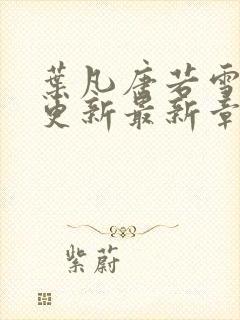 葉凡唐若雪
更新最新章
紫蔚